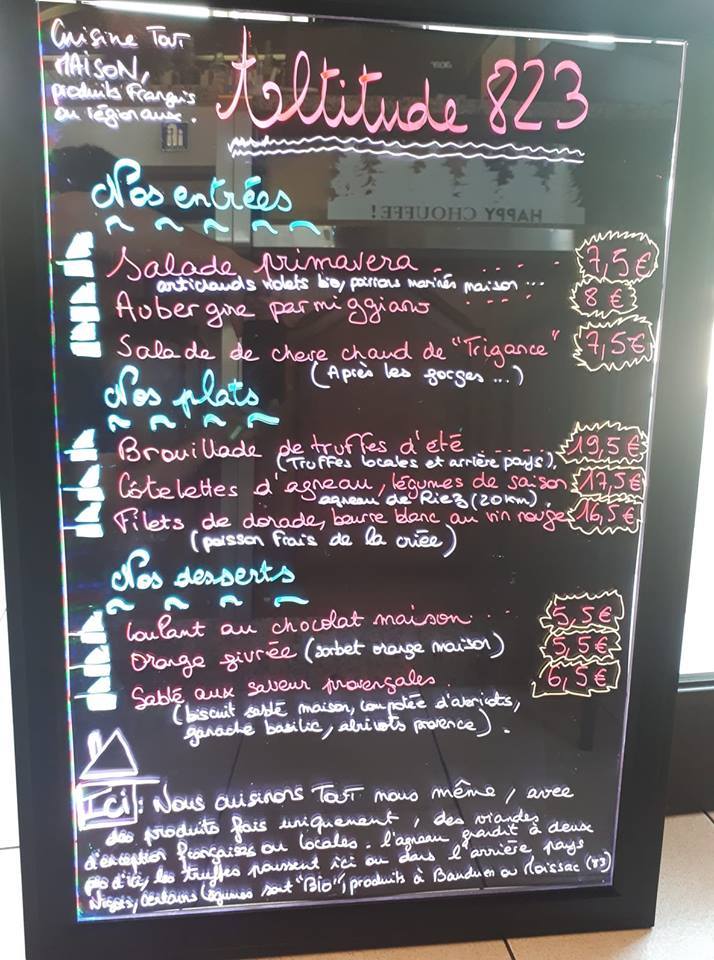 Cuisine Tout
MAISON,
produits Français
ou régionaux.
Altitude 823
HAPPY CHOUFFE!
Nos entrées
Salade primavera ... 7,5€
artichauds violets bio, poivrons marinés maison ...
Aubergine parmiggiano ... 8 €
Salade de chevre chaud de "Trigance" 7,5€
(Après les gorges ...)
Nos plats
Brouillade de truffes d'été ..... 19,5€
(Truffes locales et arrière pays).
Côtelettes d'agneau, légumes de saison 17,5€
agneau de Riez (20km).
Filets de dorade, beurre blanc au vin rouge 16,5€
(poisson frais de la criée)
Nos desserts
Coulant au chocolat maison ... 5,5€
Orange givrée (sorbet orange maison) 5,5€
Sablé aux saveur provençales. 6,5€
(biscuit sablé maison, compotée d'abricots,
ganache basilic, abricots provence).
Ici: Nous cuisinons Tout nous même, avec
des produits fais uniquement, des viandes
d'exception françaises ou locales. l'agneau grandit à deux
pas d'ici, les truffes poussent ici ou dans l'arrière pays
certains légumes sont "Bio", produits à Bauduen ou Moissac (83)